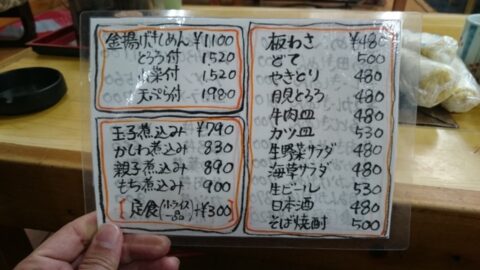 釜揚げきしめん ¥1100
とろろ付 1520
山菜付 1520
天ぷら付 1980
玉子煮込み ¥790
かしわ煮込み 830
親子煮込み 890
もち煮込み 900
定食(小ライス 一品)+¥300
板わさ ¥480
どて 500
やきとり 480
月見とろろ 480
牛肉皿 480
カツ皿 530
生野菜サラダ 480
海草サラダ 480
生ビール 530
日本酒 480
そば焼酎 500